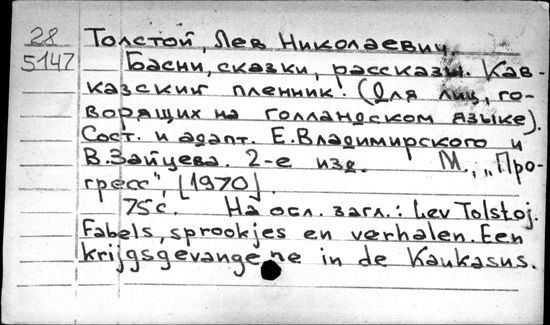 28 Толстой, Лев Николаевич.
5147 Басни, сказки, рассказы. Кав-
казский пленник. (Для лиц, го-
ворящих на голландском языке).
Сост. и адапт. Е. Владимирского и
В. Зайцева. 2-е изд. М., „Про-
гресс", [1970].
75 с. На осл. загл.: Lev Tolstoj.
Fabels, sprookjes en verhalen. Een
krijgsgevangene in de Kaukasus.